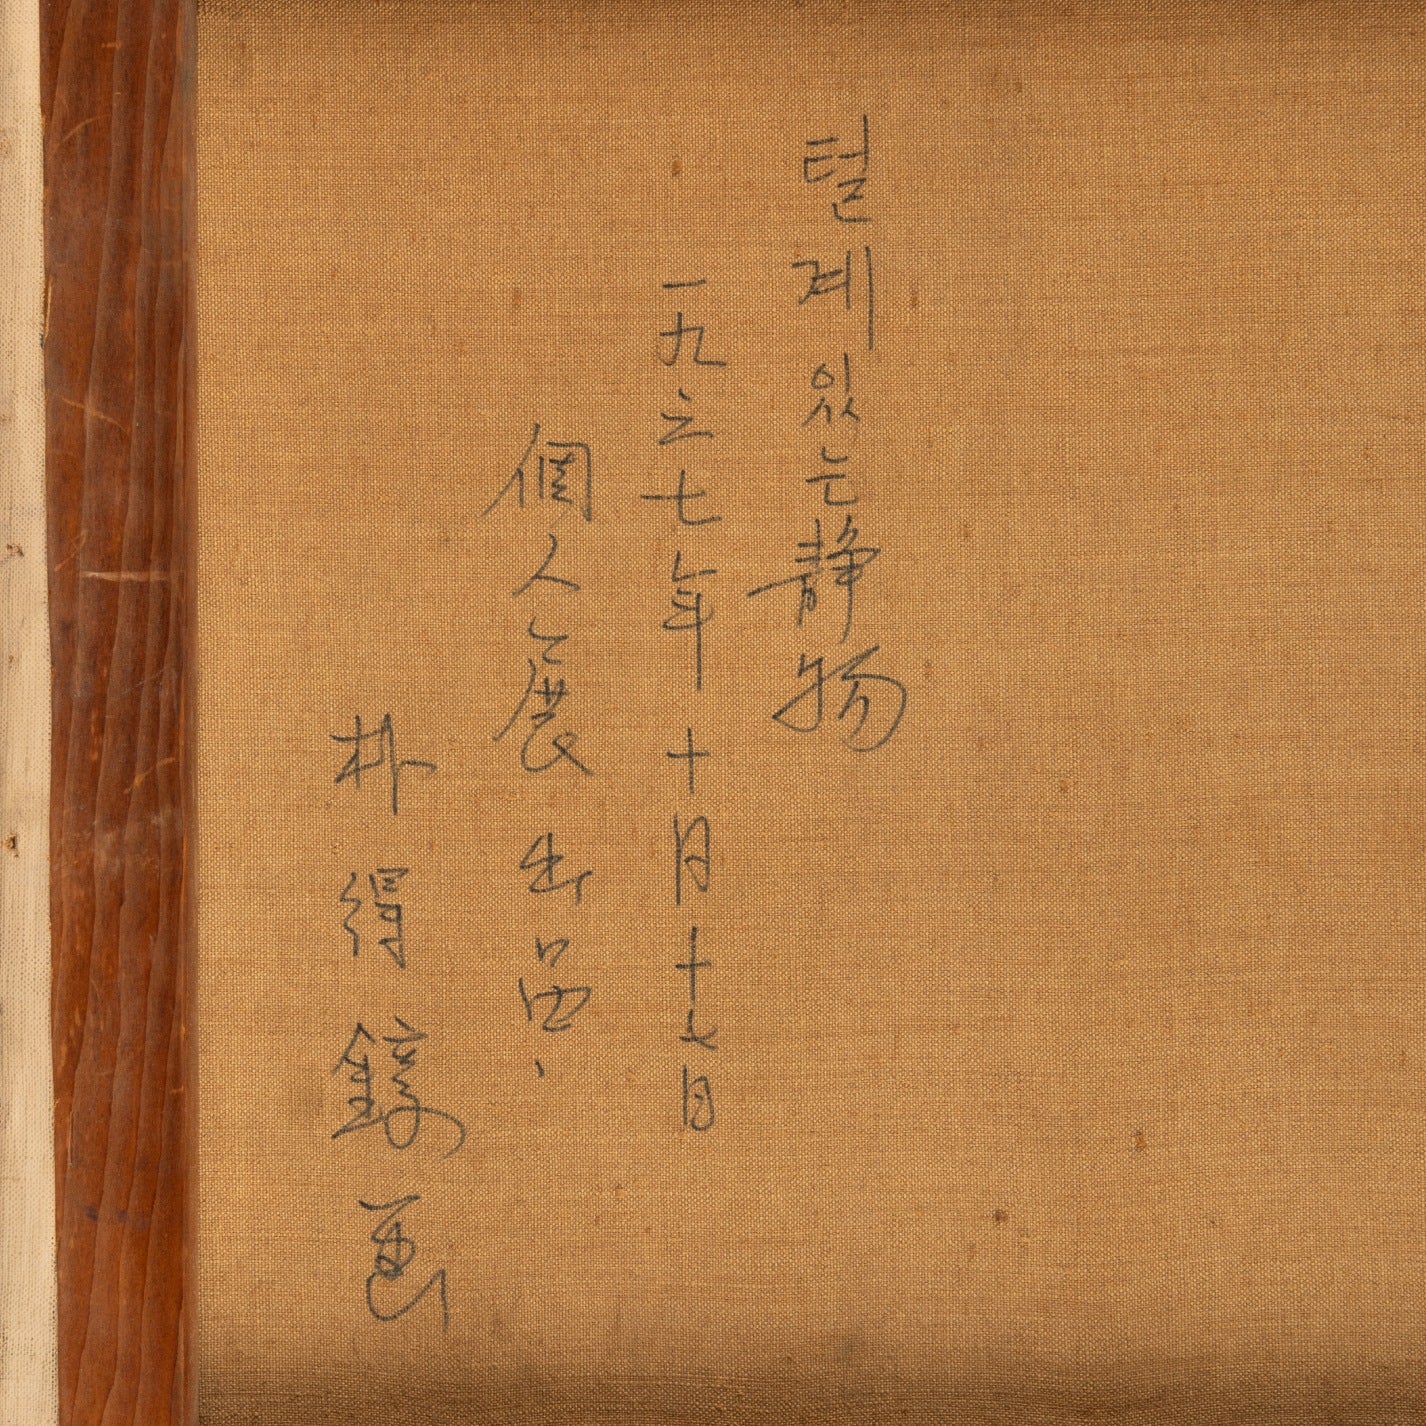 털계있는静物
一九六七年十月十七日
個人展出品、
朴得錞画